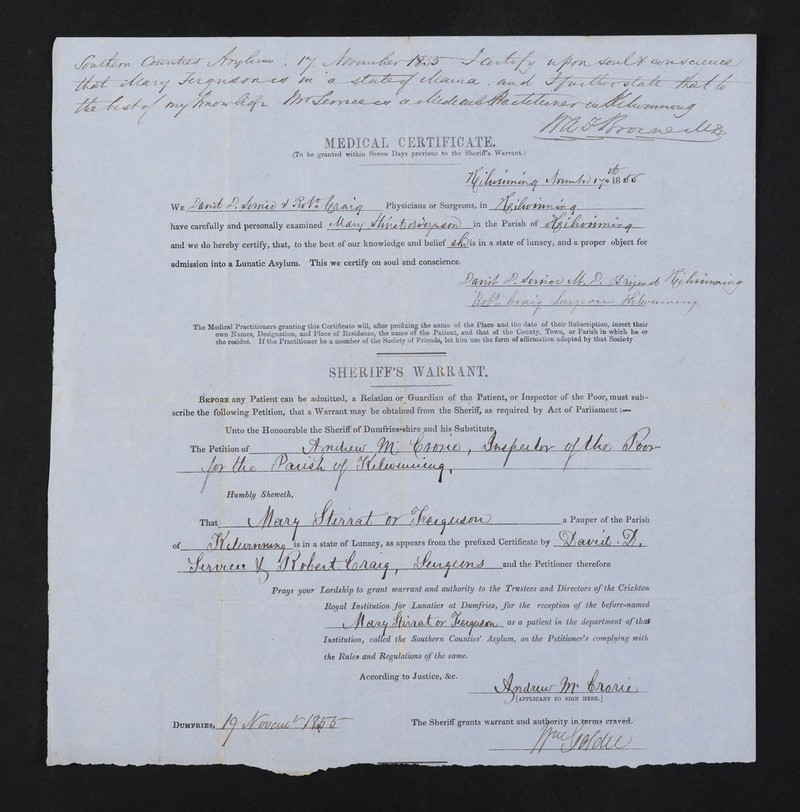 Southern Counties Asylum. 17 November 1855 I certify upon soul & conscience
that Mary Ferguson is in a state of Mania and I further state that to
the best of my knowledge Mr Service is a Medical Practitioner in Kilwinning
W A F Browne M.D.
MEDICAL CERTIFICATE.
(To be granted within Seven Days previous to the Sheriff's Warrant.)
Kilwinning November 17th 1855
WE David D. Service & Robt. Craig Physicians or Surgeons, in Kilwinning
have carefully and personally examined Mary Stirrat or Ferguson in the Parish of Kilwinning
and we do hereby certify, that, to the best of our knowledge and belief she is in a state of lunacy, and a proper object for
admission into a Lunatic Asylum. This we certify on soul and conscience.
David D. Service M.D. Kilwinning
Robt. Craig Surgeon Kilwinning
The Medical Practitioners granting this Certificate will, after prefixing the name of the Place and the date of their Subscription, insert their
own Names, Designation, and Place of Residence, the name of the Patient, and that of the County, Town, or Parish in which he or
she resides. If the Practitioner be a member of the Society of Friends, let him use the form of affirmation adopted by that Society
SHERIFF'S WARRANT.
BEFORE any Patient can be admitted, a Relation or Guardian of the Patient, or Inspector of the Poor, must sub-
scribe the following Petition, that a Warrant may be obtained from the Sheriff, as required by Act of Parliament :—
Unto the Honourable the Sheriff of Dumfries-shire and his Substitute,
The Petition of Andrew Mc Crorie, Inspector of the Poor
for the Parish of Kilwinning,
Humbly Sheweth,
That Mary Stirrat or Ferguson a Pauper of the Parish
of Kilwinning is in a state of Lunacy, as appears from the prefixed Certificate by David. D.
Service & Robert Craig, Surgeons and the Petitioner therefore
Prays your Lordship to grant warrant and authority to the Trustees and Directors of the Crichton
Royal Institution for Lunatics at Dumfries, for the reception of the before-named
Mary Stirrat or Ferguson as a patient in the department of that
Institution, called the Southern Counties' Asylum, on the Petitioner's complying with
the Rules and Regulations of the same.
According to Justice, &c.
Andrew Mc Crorie
[APPLICANT TO SIGN HERE.]
DUMFRIES, 19 Novemr 1855 The Sheriff grants warrant and authority in terms craved.
Wm Goldie